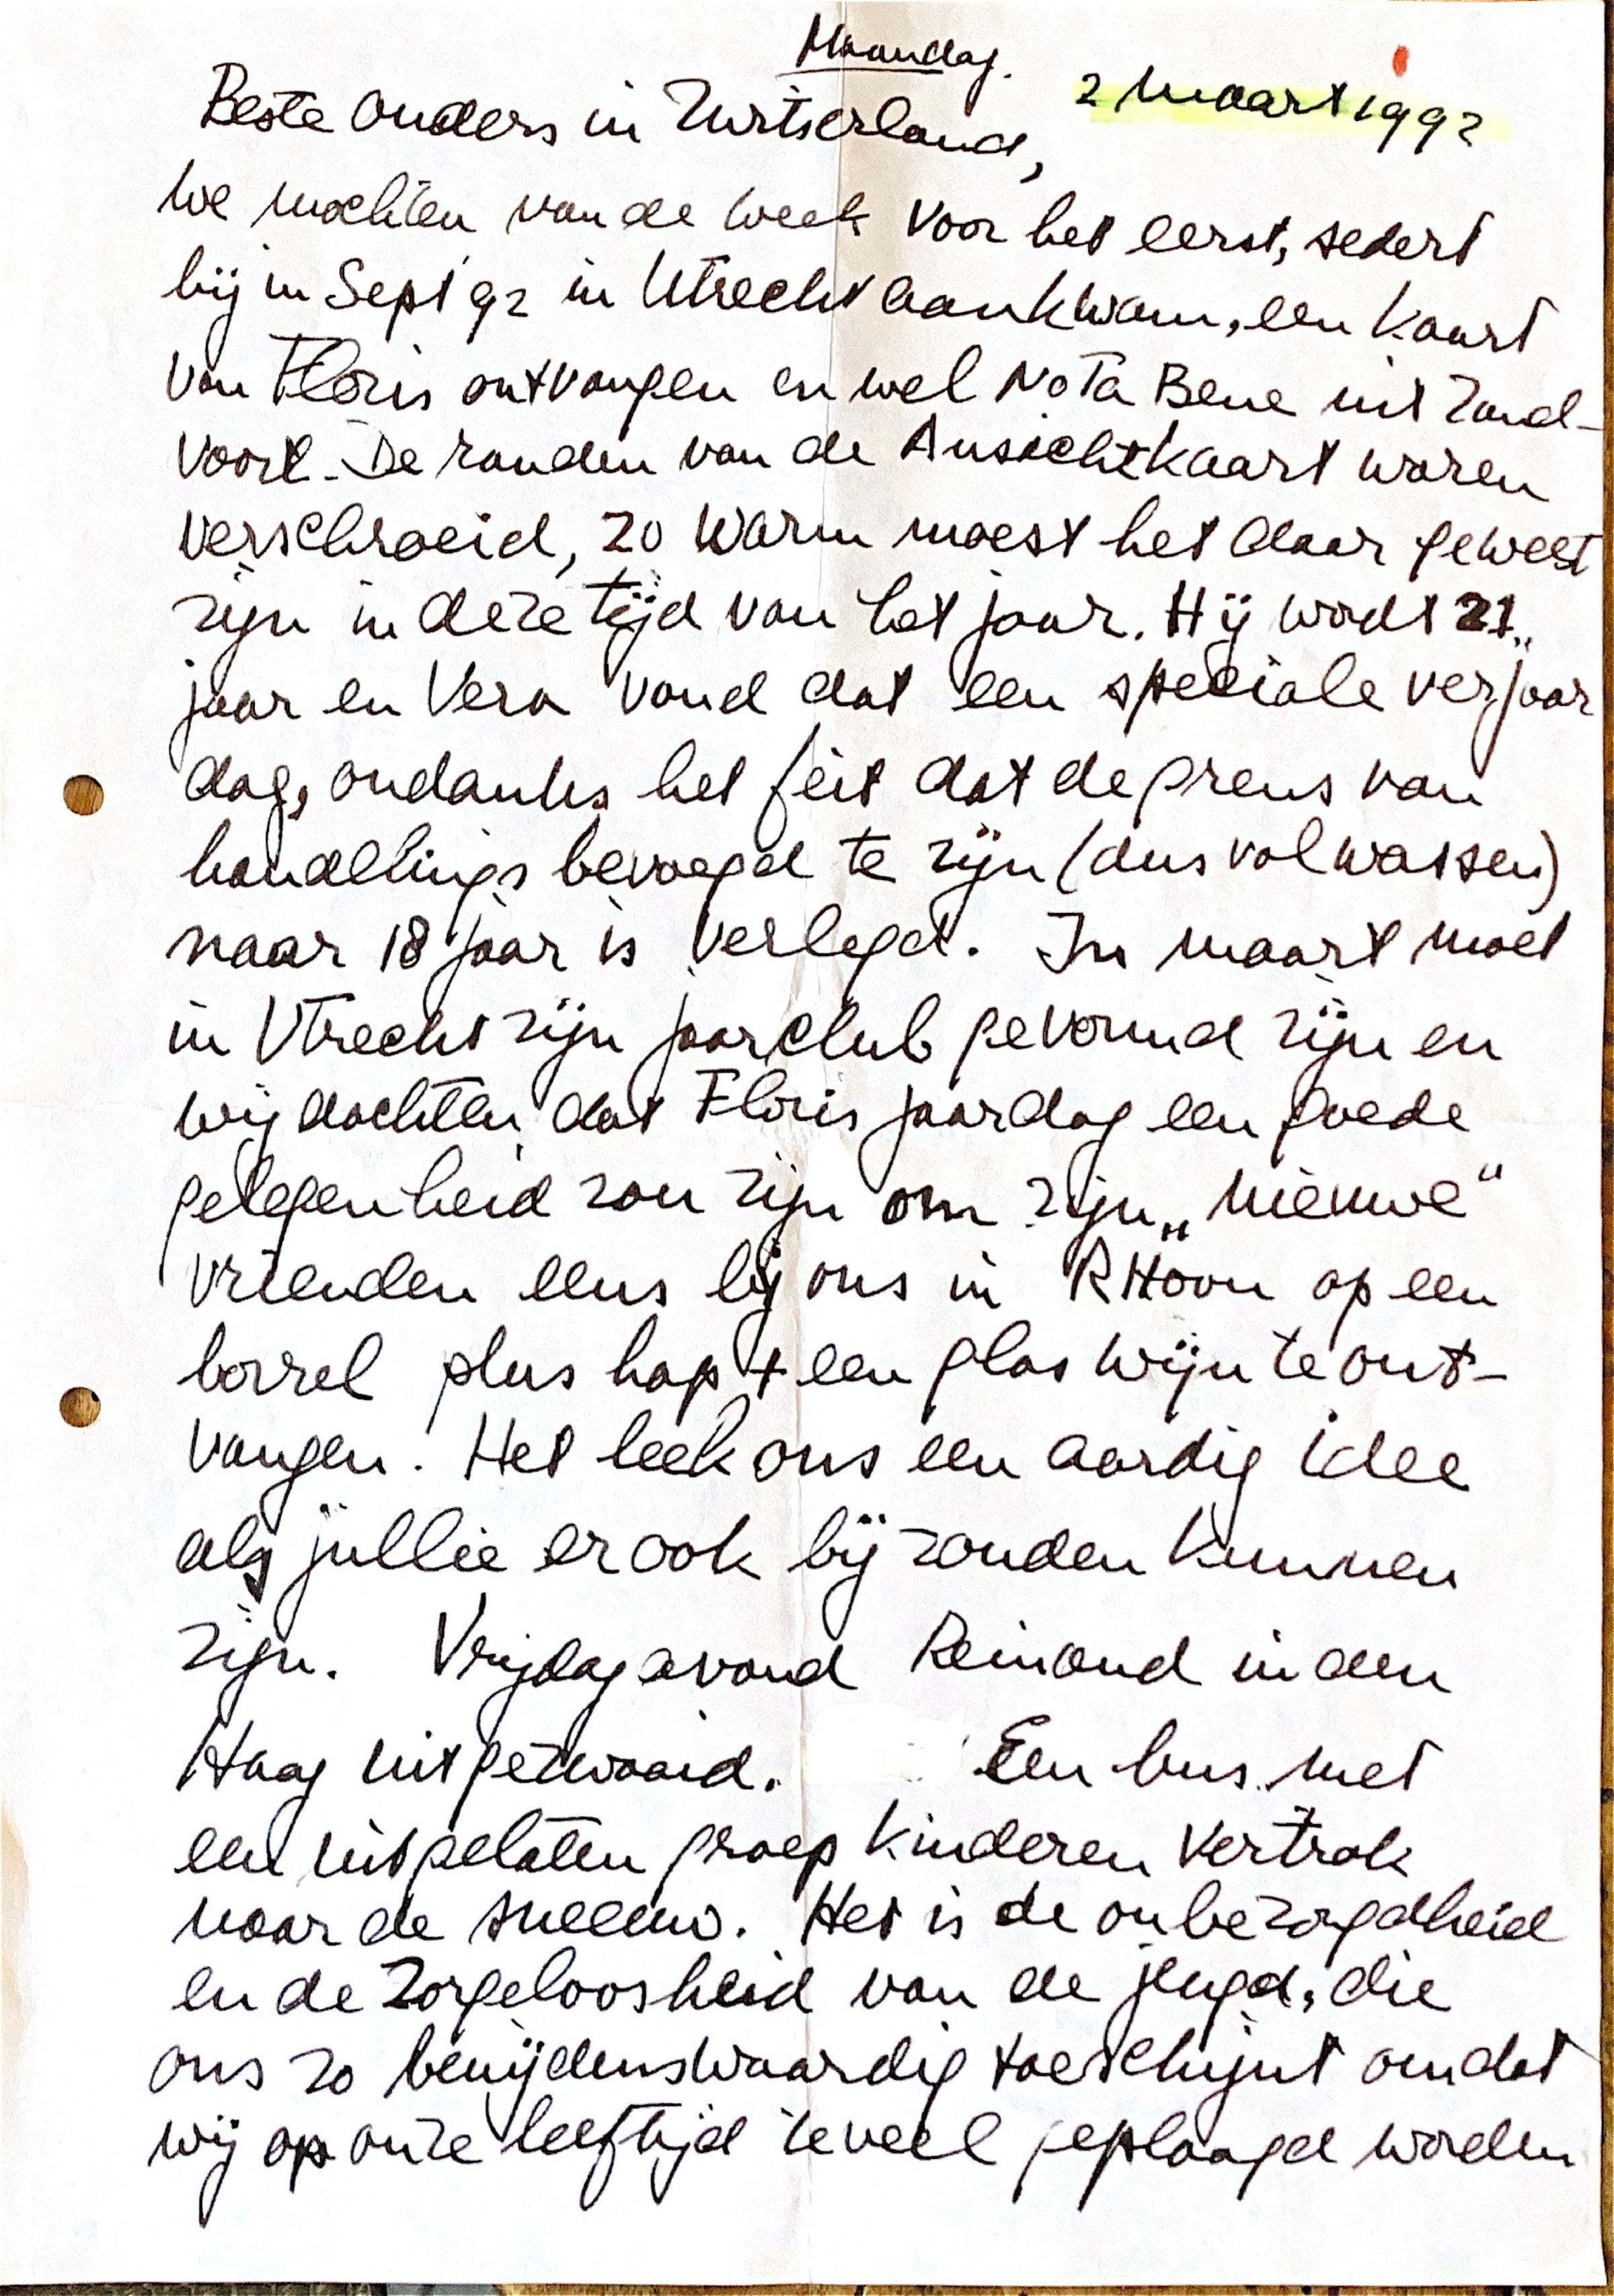 Maandag.
2 Maart 1992
Beste Ouders in Zwitserland,
we mochten van de week voor het eerst, sedert
hij in Sept 92 in Utrecht aankwam, een kaart
van Floris ontvangen en wel Nota Bene uit Zand-
voort. De randen van de Ansichtkaart waren
verschroeid, zo warm moest het daar geweest
zijn in deze tijd van het jaar. Hij wordt 21
jaar en Vera vond dat een speciale verjaar
dag, ondanks het feit dat de grens van
handelings bevoegd te zijn (dus volwassen)
naar 18 jaar is verlegd. In maart moet
in Utrecht zijn jaarclub gevormd zijn en
wij dachten dat Floris jaardag een goede
gelegenheid zou zijn om zijn „nieuwe"
vrienden eens bij ons in RHoon op een
borrel plus hap + een glas wijn te ont-
vangen. Het leek ons een aardig idee
als jullie er ook bij zouden kunnen
zijn. Vrijdagavond Reinoud in den
Haag uitgezwaaid. Een bus met
een uitgelaten groep kinderen vertrok
naar de sneeuw. Het is de onbezorgdheid
en de zorgeloosheid van de jeugd, die
ons zo benijdenswaardig toeschijnt omdat
wij op onze leeftijd teveel geplaagd worden